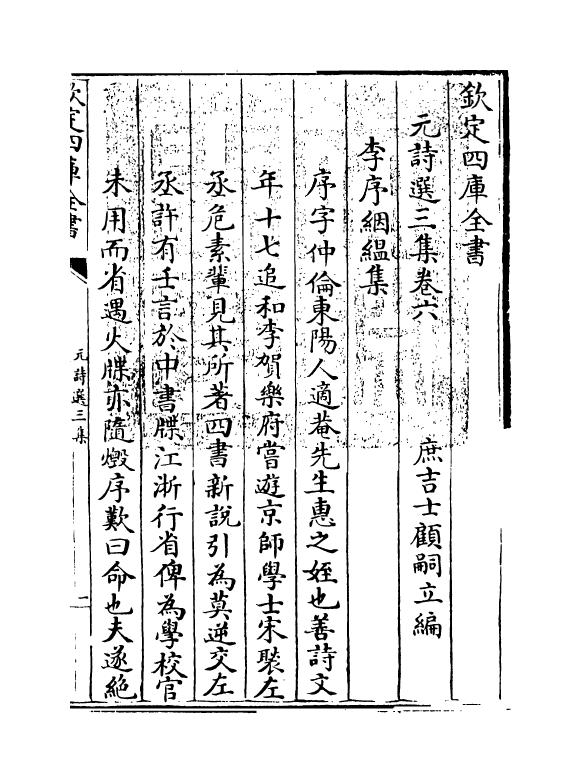 欽定四庫全書
元詩選三集卷六
庶吉士顧嗣立編
李序絪緼集
序字仲倫東陽人適菴先生惠之姪也善詩文
年十七追和李賀樂府嘗遊京師學士宋褧左
丞危素輩見其所著四書新說引為莫逆交左
丞許有壬言於中書牒江浙行省俾為學校官
未用而省遇火牒亦隨燬序歎曰命也夫遂絶
欽定四庫全書
元詩選三集
一